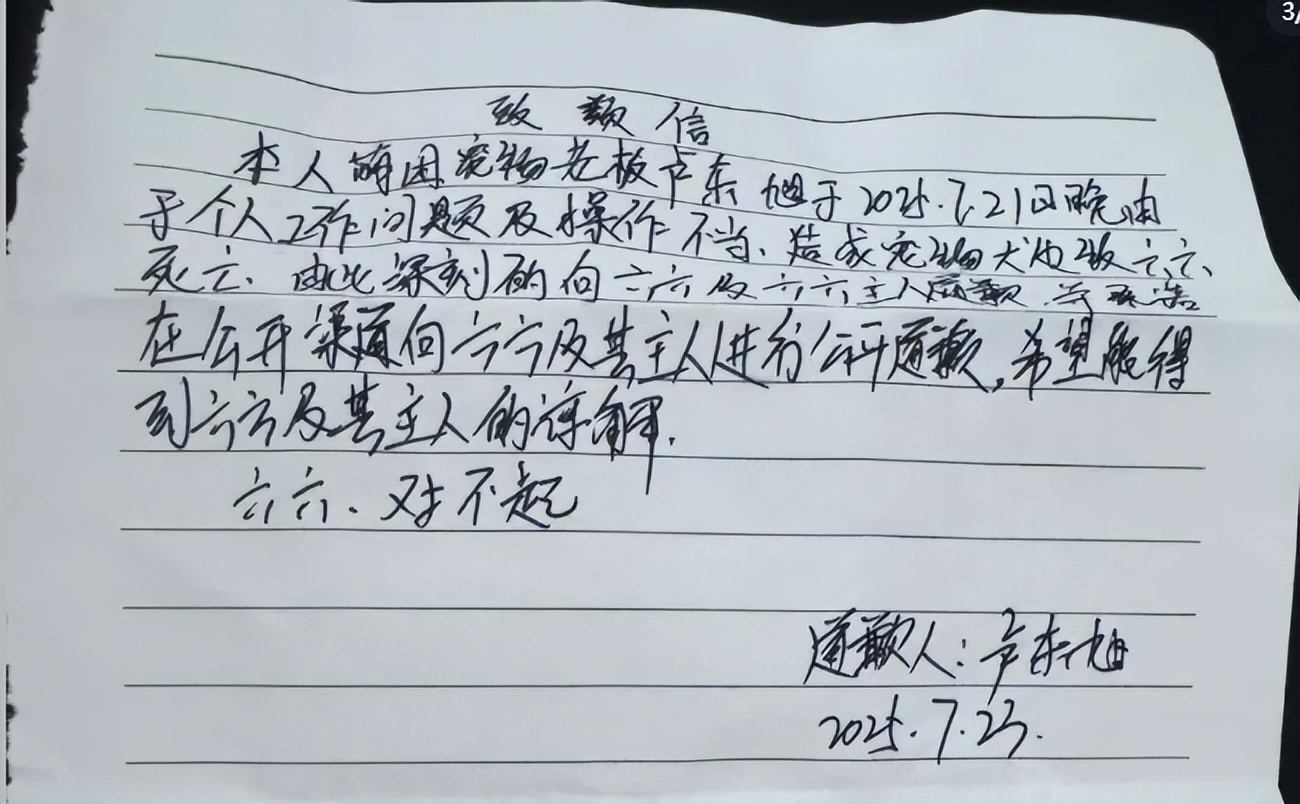 3/
致歉信
本人萌困宠物老板卢东旭于2025.7.21日晚由
于个人工作问题及操作不当、造成宠物犬边牧六六、
死亡、由此深刻的向六六及六六主人道歉、并承诺
在公开渠道向六六及其主人进行公开道歉,希望能得
到六六及其主人的谅解.
六六、对不起
道歉人:卢东旭
2025.7.23.